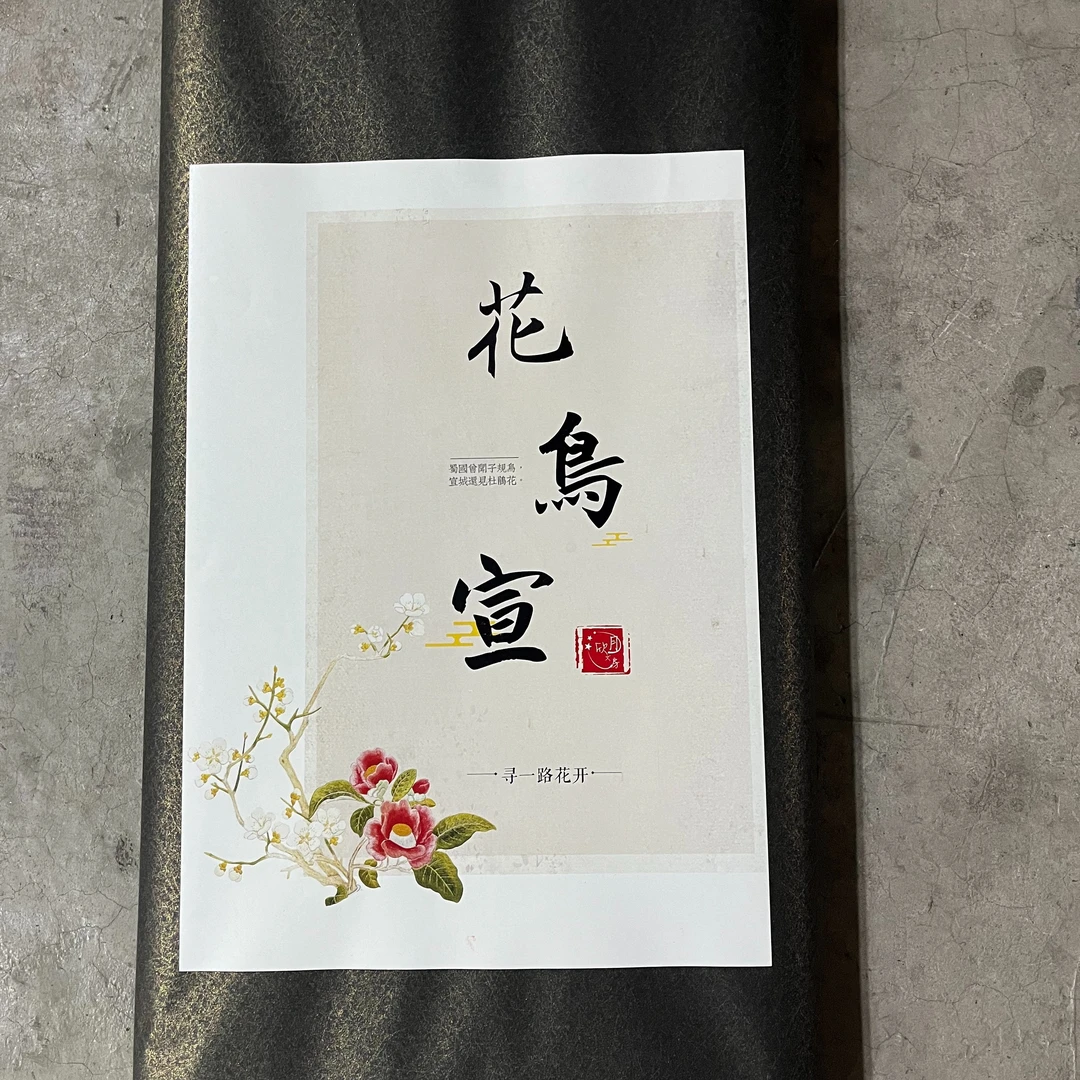 花
鳥
宣
蜀國曾聞子規鳥，
宣城還見杜鵑花。
欣月文房
寻一路花开